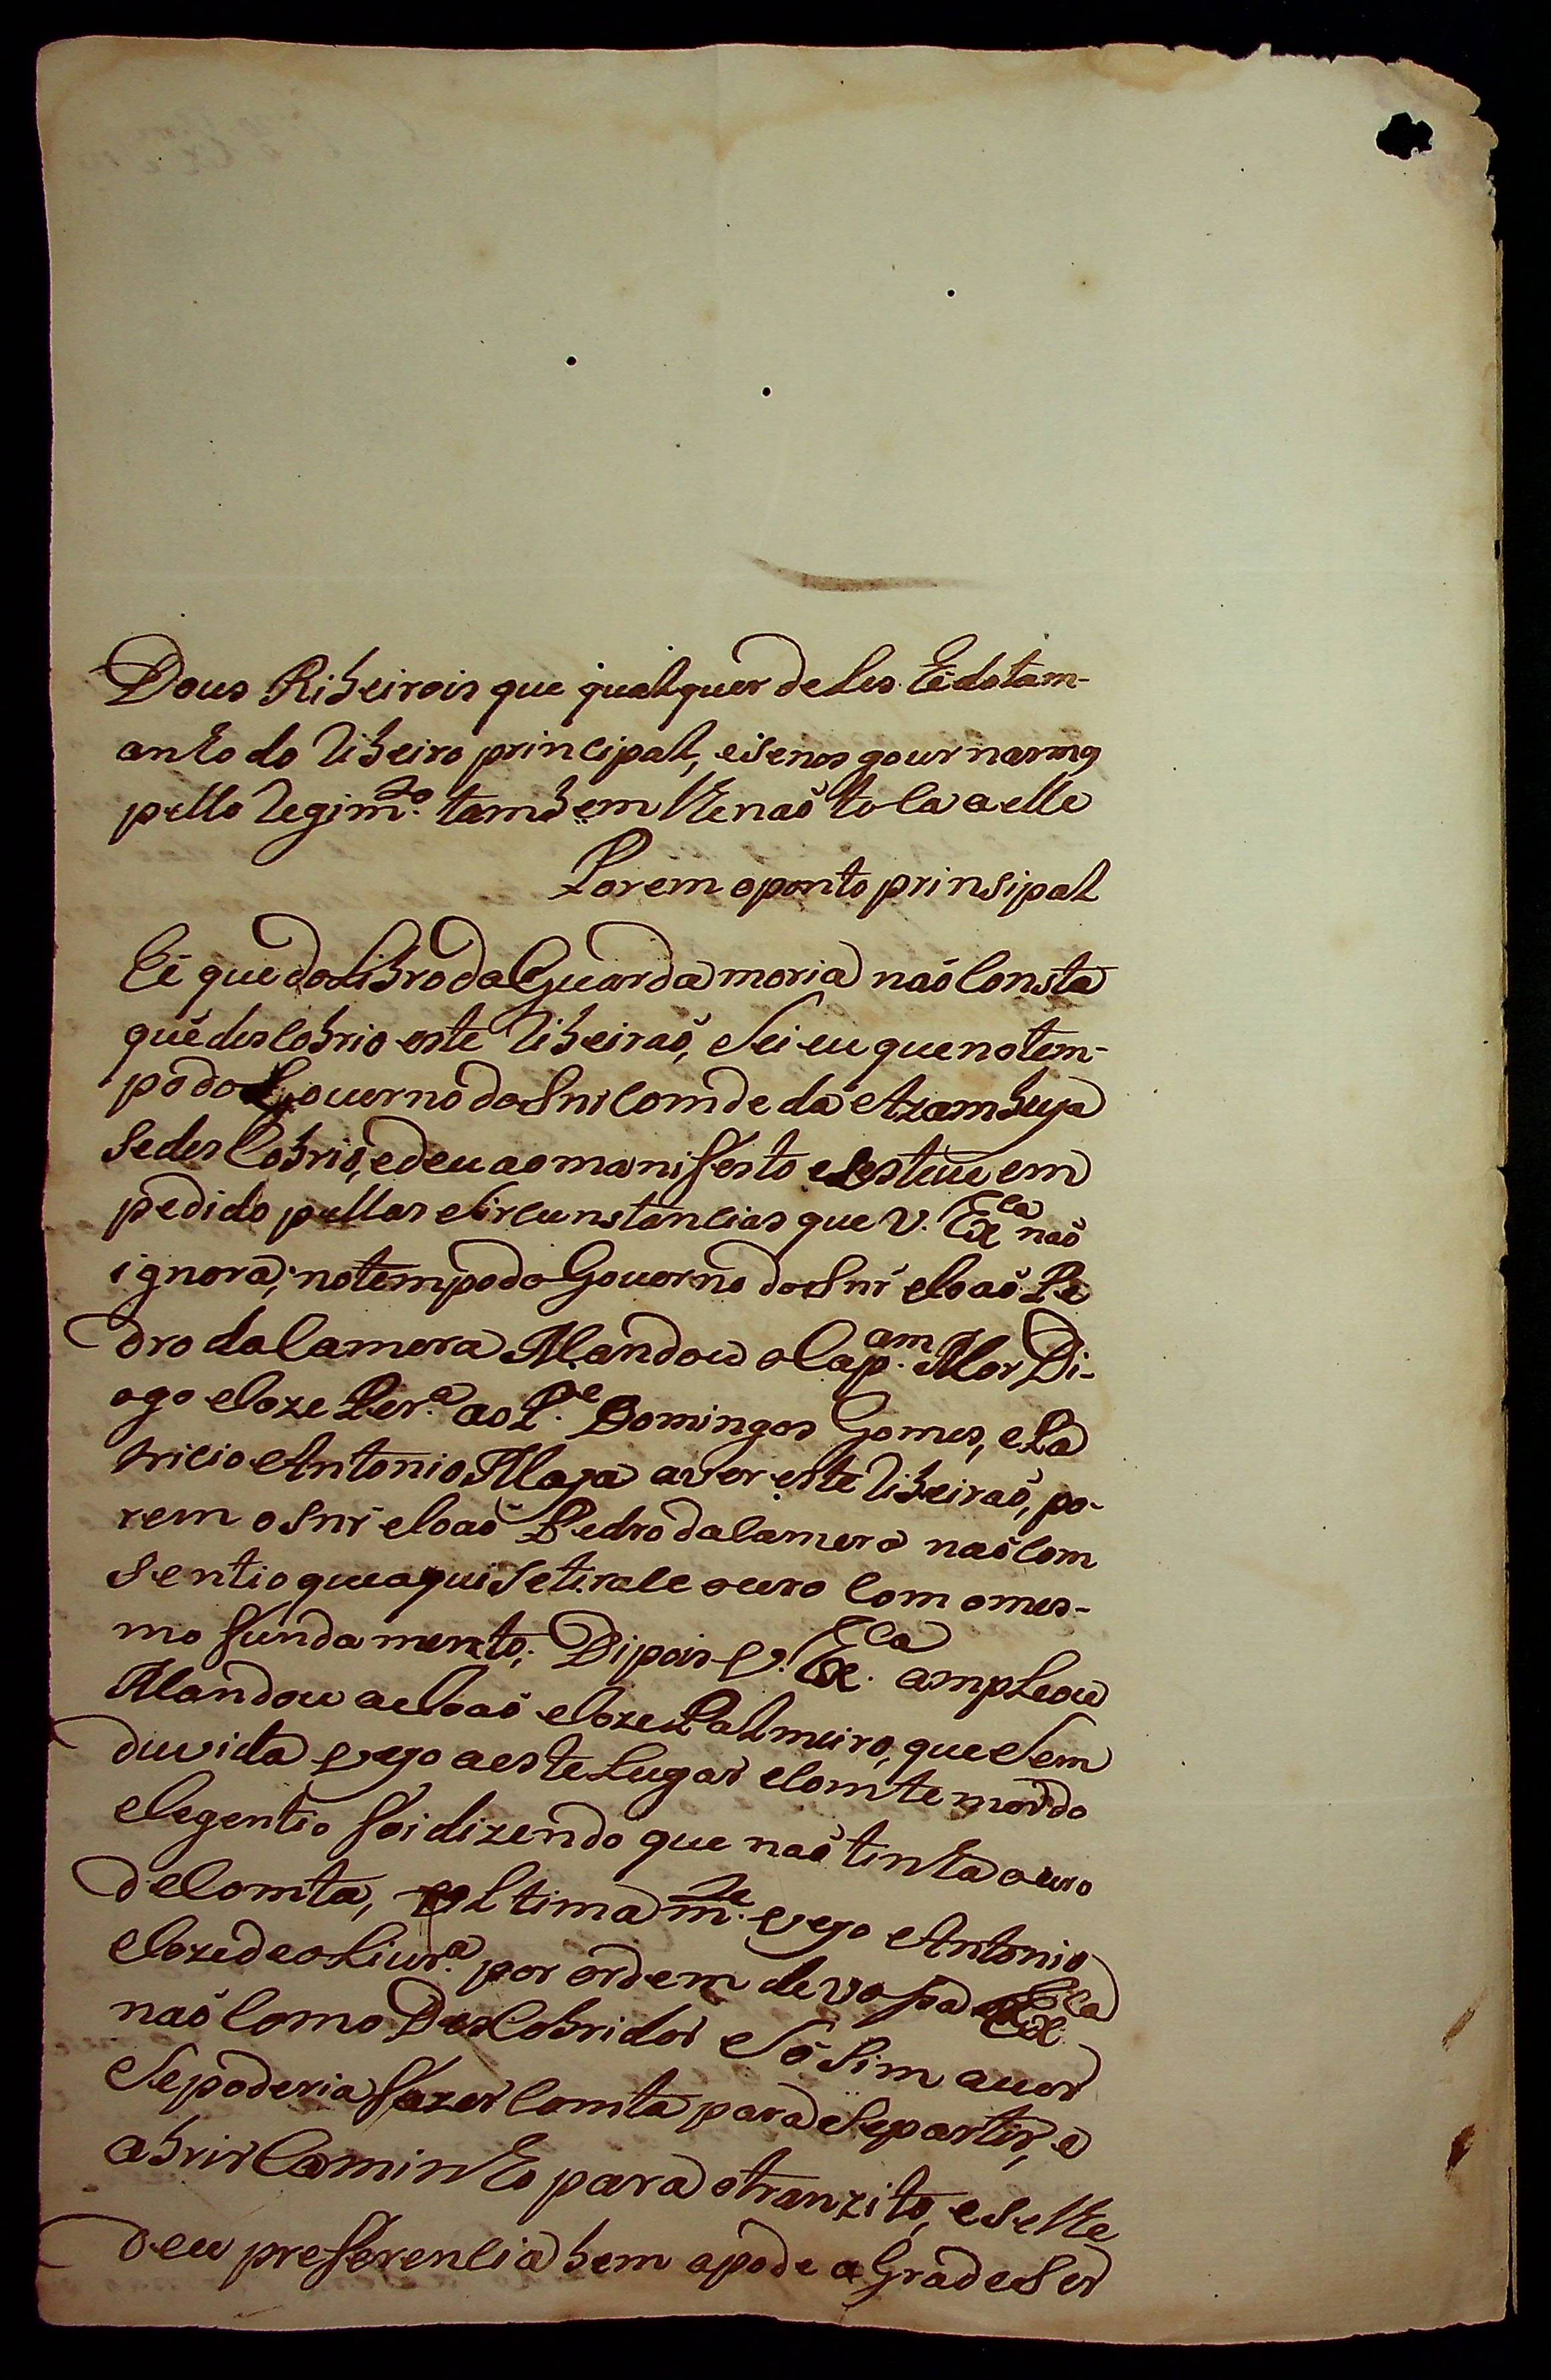 Dous Ribeirois que qualquer deles hé do tam-
anho do ribeiro principal, e se nos gouvrnarmos
pello regim.to tambem lhe naõ toca a elle
Porem o ponto prinsipal
hé que do Libro da Guardamoria naõ Consta
quẽ descobrio este ribeiraõ, Sei eu que no tem-
po do Governo do Snr Comde da Azambuja
Se des Cobrio, e deu ao manifesto e esteve em
pedido pellas Circunstancias que V. Ex.ca naõ
ignora; no tempo do Governo do Snr Joaõ Pe
dro da Camera Mandou o Cap.am Mor Di-
ogo Joze Per.a ao P.e Domingos Gomes, e Pa
tricio Antonio Maya a ver este ribeiraõ, po-
rem o Snr Joaõ Pedro da Camera naõ Com
Sentio que aqui Se tirace ouro Com o mes-
mo fundamento; Dipois V. Ex.ca ampleou
Mandou a Joaõ Joze Palmeiro, que Sem
duvida veyo a este Lugar e Com temor do
e Ie gentio foi dizendo que naõ tinha ouro
de Comta, e oltimam.te veyo Antonio
Joze de oLiur.a por ordem de vosa Ex.ca
naõ Como DesCobridor e Só Sim a ver
Se poderia fazer Comta para Se partir, e
abrir Caminho para o tranzito, e Se lhe
deu preferencia bem a pode a GradeSer